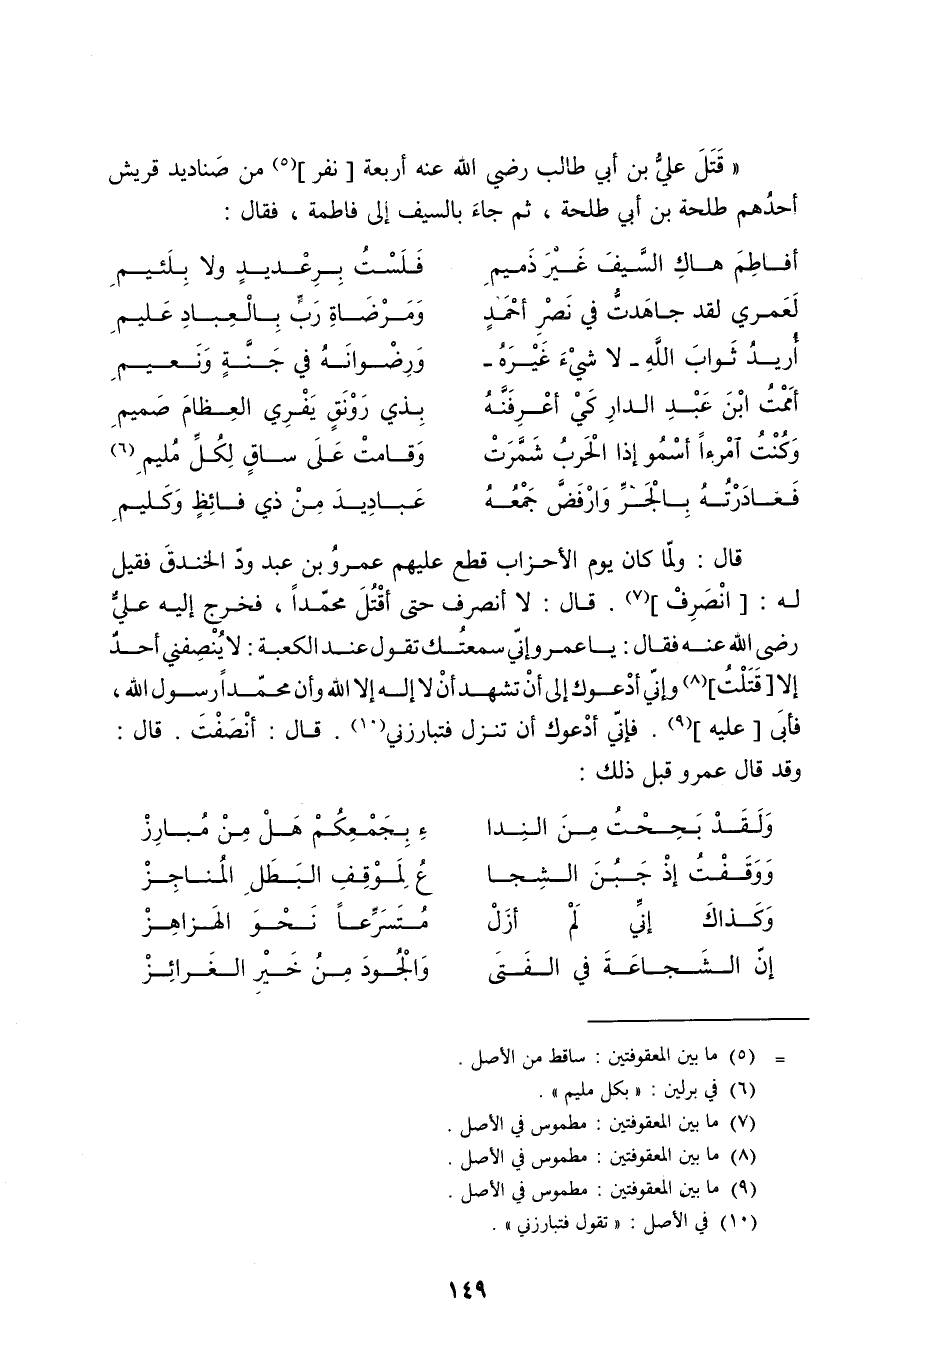 « قَتَلَ عليُّ بن أبي طالب رضي الله عنه أربعة [ نفر ](٥) من صَناديد قريش
أحدُهم طلحة بن أبي طلحة ، ثم جاءَ بالسيف إلى فاطمة ، فقال :
أفـاطِمُ هـاكِ السَّيفَ غَيرَ ذَميمِ فَلَسْتُ بِرِعْديدٍ ولا بِلَئيمِ
لَعَمري لقد جاهَدتُ في نَصْرِ أحْمَدٍ وَمَرْضاةِ رَبٍّ بالعِبادِ عَليمِ
أُريدُ ثَوابَ اللهِ ـ لا شيْءَ غَيْرَهُ ـ وَرِضْوانَهُ في جَنَّةٍ وَنَعيمِ
أمَمْتُ ابْنَ عَبْدِ الدارِ كي أعْرِفَنَّهُ بِذي رَوْنَقٍ يَفْري العِظامَ صَميمِ
وَكُنْتُ آمْرءاً أسْمُو إذا الحَرْبُ شَمَّرَتْ وَقامَتْ عَلى ساقٍ لِكُلِّ مُليمِ(٦)
فَغادَرْتُهُ بالحَزِّ وَارْفَضَّ جَمْعُهُ عَباديدَ مِنْ ذي فائظٍ وَكَليمِ
قال : ولمّا كان يوم الأحزاب قطع عليهم عمروُ بن عبد ودّ الخندقَ فقيل
له : [ انْصَرِفْ ](٧) . قال : لا أنصرف حتى أقْتُلَ محمّداً ، فخرج إليه عليٌّ
رضي الله عنه فقال : يا عمرو إنّي سمعتُك تقول عند الكعبة : لا يُنْصِفني أحدٌ
إلا [ قَتَلْتُ ](٨) وإنّي أدْعوك إلى أنْ تشهد أنْ لا إله إلا الله وأن محمّداً رسول الله ،
فأبى [ عليه ](٩) . فإنّي أدْعوك أن تنزل فتبارزني(١٠) . قال : أنْصَفْتَ . قال :
وقد قال عمرو قبل ذلك :
وَلَقَدْ بَحِحْتُ مِنَ النِدا ءِ بِجَمْعِكُمْ هَلْ مِنْ مُبارِزْ
وَوَقَفْتُ إذْ جَبُنَ الشُجا عُ لِمَوْقِفِ البَطَلِ المُناجِزْ
وَكَذاكَ إنّي لَمْ أزَلْ مُتَسَرِّعاً نَحْوَ الهَزاهِزْ
إنّ الشَجاعَةَ في الفَتى وَالجُودَ مِنْ خَيْرِ الغَرائِزْ
= (٥) ما بين المعقوفتين : ساقط من الأصل .
(٦) في برلين : « بكل مليم » .
(٧) ما بين المعقوفتين : مطموس في الأصل .
(٨) ما بين المعقوفتين : مطموس في الأصل .
(٩) ما بين المعقوفتين : مطموس في الأصل .
(١٠) في الأصل : « تقول فتبارزني » .
١٤٩